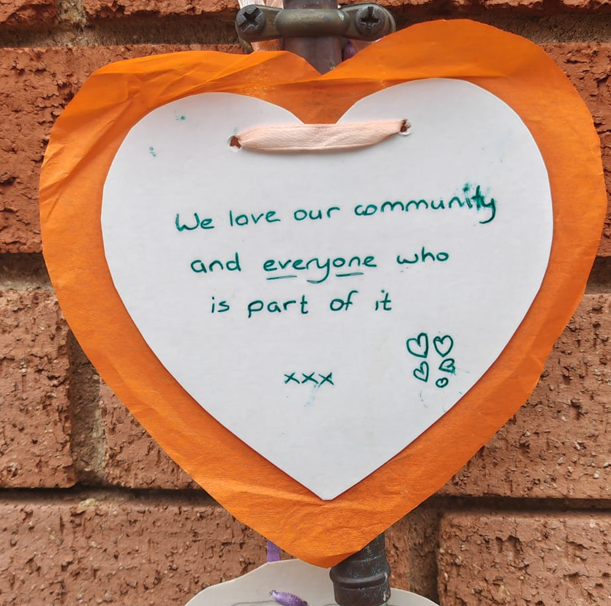 We love our community
and everyone who
is part of it
xxx